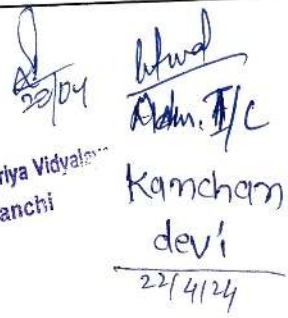 20/04
Adm. I/C
riya Vidyalay
anchi
Kanchan
devi
22/4/24